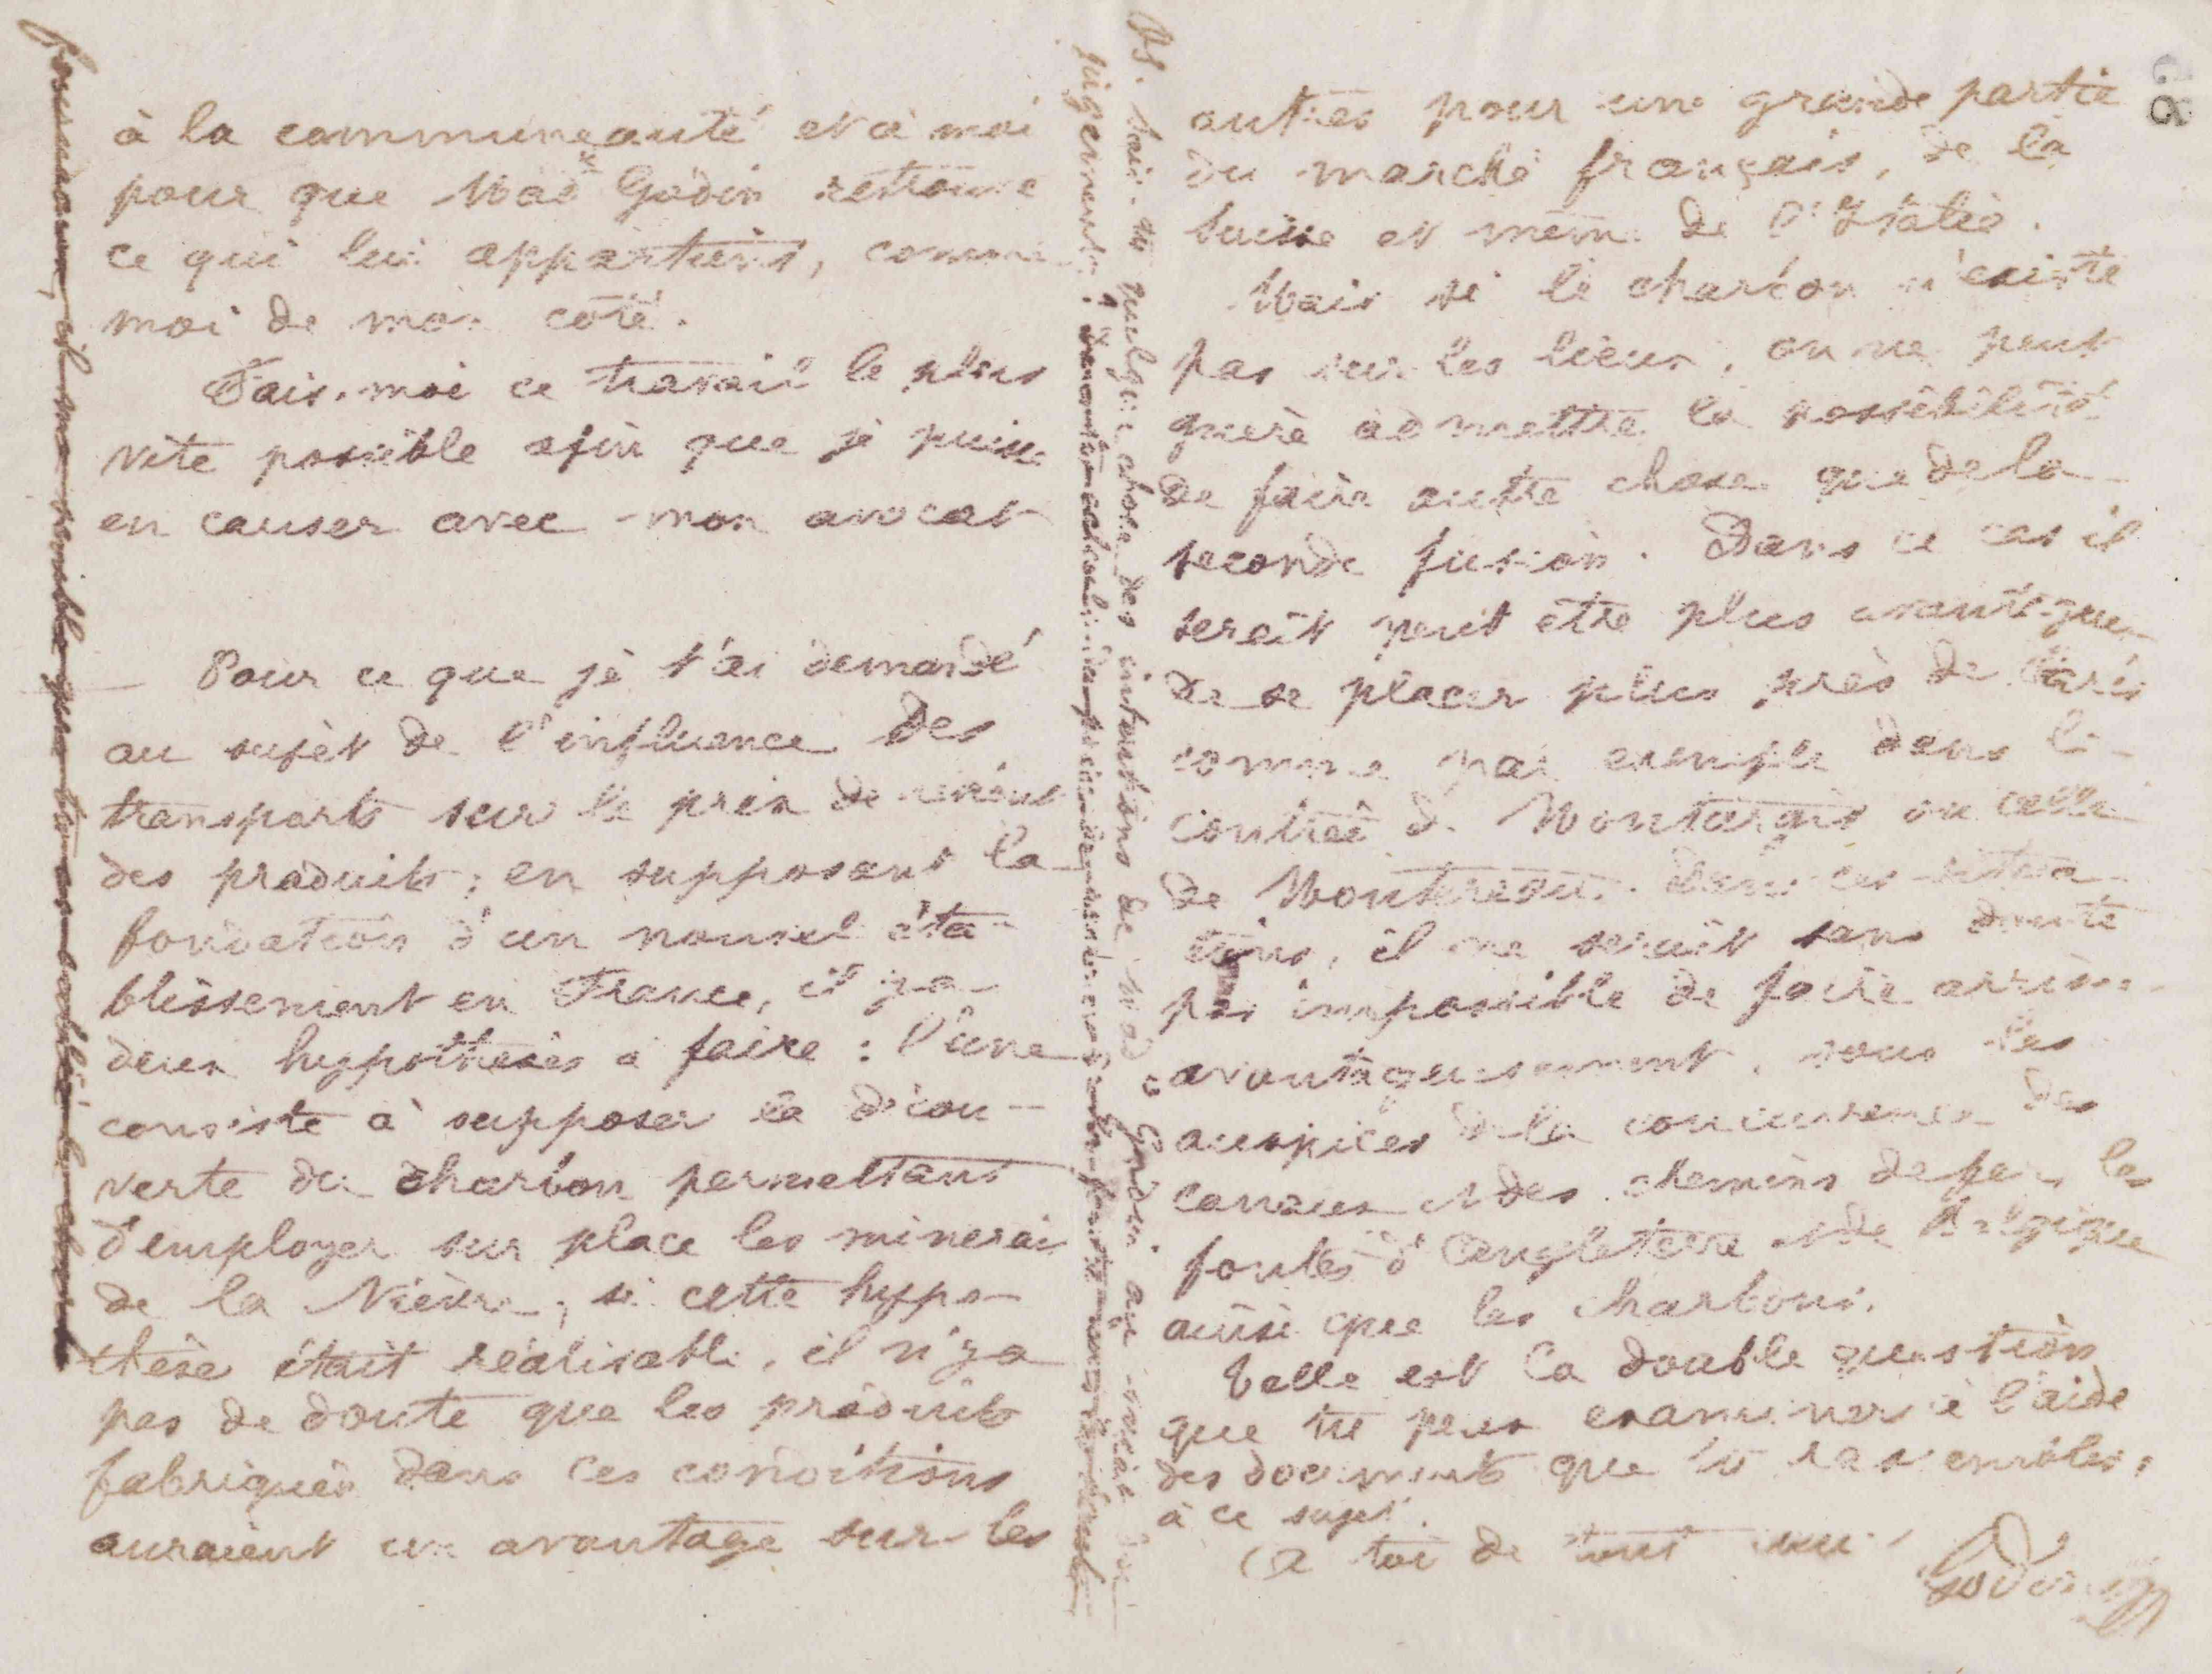 à la communeauté et à moi
pour que Mad^e Godin retrouve
ce qui lui appartient, comme
moi de mon côté.
Fais-moi ce travail le plus
vite possible afin que je puisse
en causer avec mon avocat
Pour ce que je t'ai demandé
au sujet de l'influence des
transports sur le prix de revient
des produits ; en supposant la
fondation d'un nouvel éta-
blissement en France, il y a
deux hypothèses à faire : l'une
consiste à supposer la décou-
verte du charbon permettant
d'employer sur place les minerais
de la Nièvre ; si cette hypo-
thèse était réalisable, il n'y a
pas de doute que les produits
fabriqués dans ces conditions
auraient un avantage sur les
autres pour une grande partie
du marché français, de la
Suisse et même de l'Italie.
Mais si le charbon n'existe
pas sur les lieux, on ne peut
guère admettre la possibilité
de faire autre chose que de la
seconde fusion. Dans ce cas il
serait peut être plus avantageux
de se placer plus près de Paris
comme par exemple dans la
contrée de Montargis ou celle
de Montereau. Dans ces situa-
tions, il ne serait sans doute
pas impossible de faire arriver
avantageusement, sous les
auspices de la concurrence des
canaux et des chemins de fer, les
fontes d'Angleterre et de Belgique
ainsi que les charbons.
Telle est la double question
que tu peux examiner à l'aide
des documents que tu rassembles
à ce sujet.
A toi de tout cœur
Godin
PS. Sais-tu quelque chose des intentions de Mad^e Godin au sujet du
jugement ?